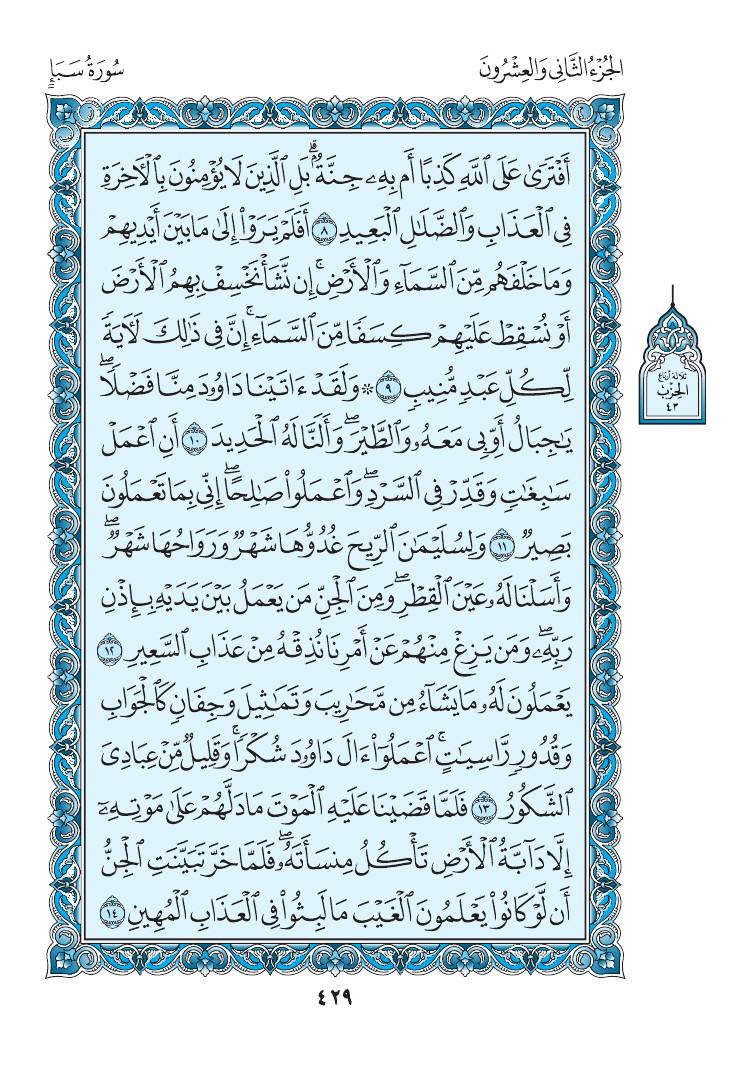 الجُزْءُ الثَّانِي وَالعِشْرُونَ
سُورَةُ سَبَإٍ
أَفْتَرَىٰ عَلَى ٱللَّهِ كَذِبًا أَم بِهِۦ جِنَّةُۢۗ بَلِ ٱلَّذِينَ لَا يُؤْمِنُونَ بِٱلْأٓخِرَةِ
فِى ٱلْعَذَابِ وَٱلضَّلَٰلِ ٱلْبَعِيدِ ٨ أَفَلَمْ يَرَوْا۟ إِلَىٰ مَا بَيْنَ أَيْدِيهِمْ
وَمَا خَلْفَهُم مِّنَ ٱلسَّمَآءِ وَٱلْأَرْضِۚ إِن نَّشَأْ نَخْسِفْ بِهِمُ ٱلْأَرْضَ
أَوْ نُسْقِطْ عَلَيْهِمْ كِسَفًا مِّنَ ٱلسَّمَآءِۚ إِنَّ فِى ذَٰلِكَ لَأٓيَةً
لِّكُلِّ عَبْدٍ مُّنِيبٍ ٩ ۞ وَلَقَدْ ءَاتَيْنَا دَاوُۥدَ مِنَّا فَضْلًاۖ
يَٰجِبَالُ أَوِّبِى مَعَهُۥ وَٱلطَّيْرَۖ وَأَلَنَّا لَهُ ٱلْحَدِيدَ ١٠ أَنِ ٱعْمَلْ
سَٰبِغَٰتٍ وَقَدِّرْ فِى ٱلسَّرْدِۖ وَٱعْمَلُوا۟ صَٰلِحًاۖ إِنِّى بِمَا تَعْمَلُونَ
بَصِيرٌ ١١ وَلِسُلَيْمَٰنَ ٱلرِّيحَ غُدُوُّهَا شَهْرٌ وَرَوَاحُهَا شَهْرٌۖ
وَأَسَلْنَا لَهُۥ عَيْنَ ٱلْقِطْرِۖ وَمِنَ ٱلْجِنِّ مَن يَعْمَلُ بَيْنَ يَدَيْهِ بِإِذْنِ
رَبِّهِۦۖ وَمَن يَزِغْ مِنْهُمْ عَنْ أَمْرِنَا نُذِقْهُ مِنْ عَذَابِ ٱلسَّعِيرِ ١٢
يَعْمَلُونَ لَهُۥ مَا يَشَآءُ مِن مَّحَٰرِيبَ وَتَمَٰثِيلَ وَجِفَانٍ كَٱلْجَوَابِ
وَقُدُورٍ رَّاسِيَٰتٍۚ ٱعْمَلُوٓا۟ ءَالَ دَاوُۥدَ شُكْرًاۚ وَقَلِيلٌ مِّنْ عِبَادِىَ
ٱلشَّكُورُ ١٣ فَلَمَّا قَضَيْنَا عَلَيْهِ ٱلْمَوْتَ مَا دَلَّهُمْ عَلَىٰ مَوْتِهِۦٓ
إِلَّا دَآبَّةُ ٱلْأَرْضِ تَأْكُلُ مِنسَأَتَهُۥۖ فَلَمَّا خَرَّ تَبَيَّنَتِ ٱلْجِنُّ
أَن لَّوْ كَانُوا۟ يَعْلَمُونَ ٱلْغَيْبَ مَا لَبِثُوا۟ فِى ٱلْعَذَابِ ٱلْمُهِينِ ١٤
ثلاثة أرباع
الحزب
٤٣
٤٢٩